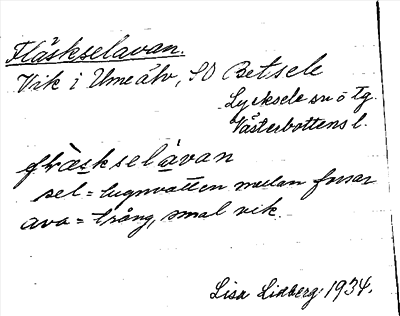 Fläskselavan.
Vik i Umeälv, SO Betsele
Lycksele sn o Tg.
Västerbottens l.
fläskselavan
sel = lugnvatten mellan forsar
ava = trång, smal vik.
Lisa Lidberg 1934.